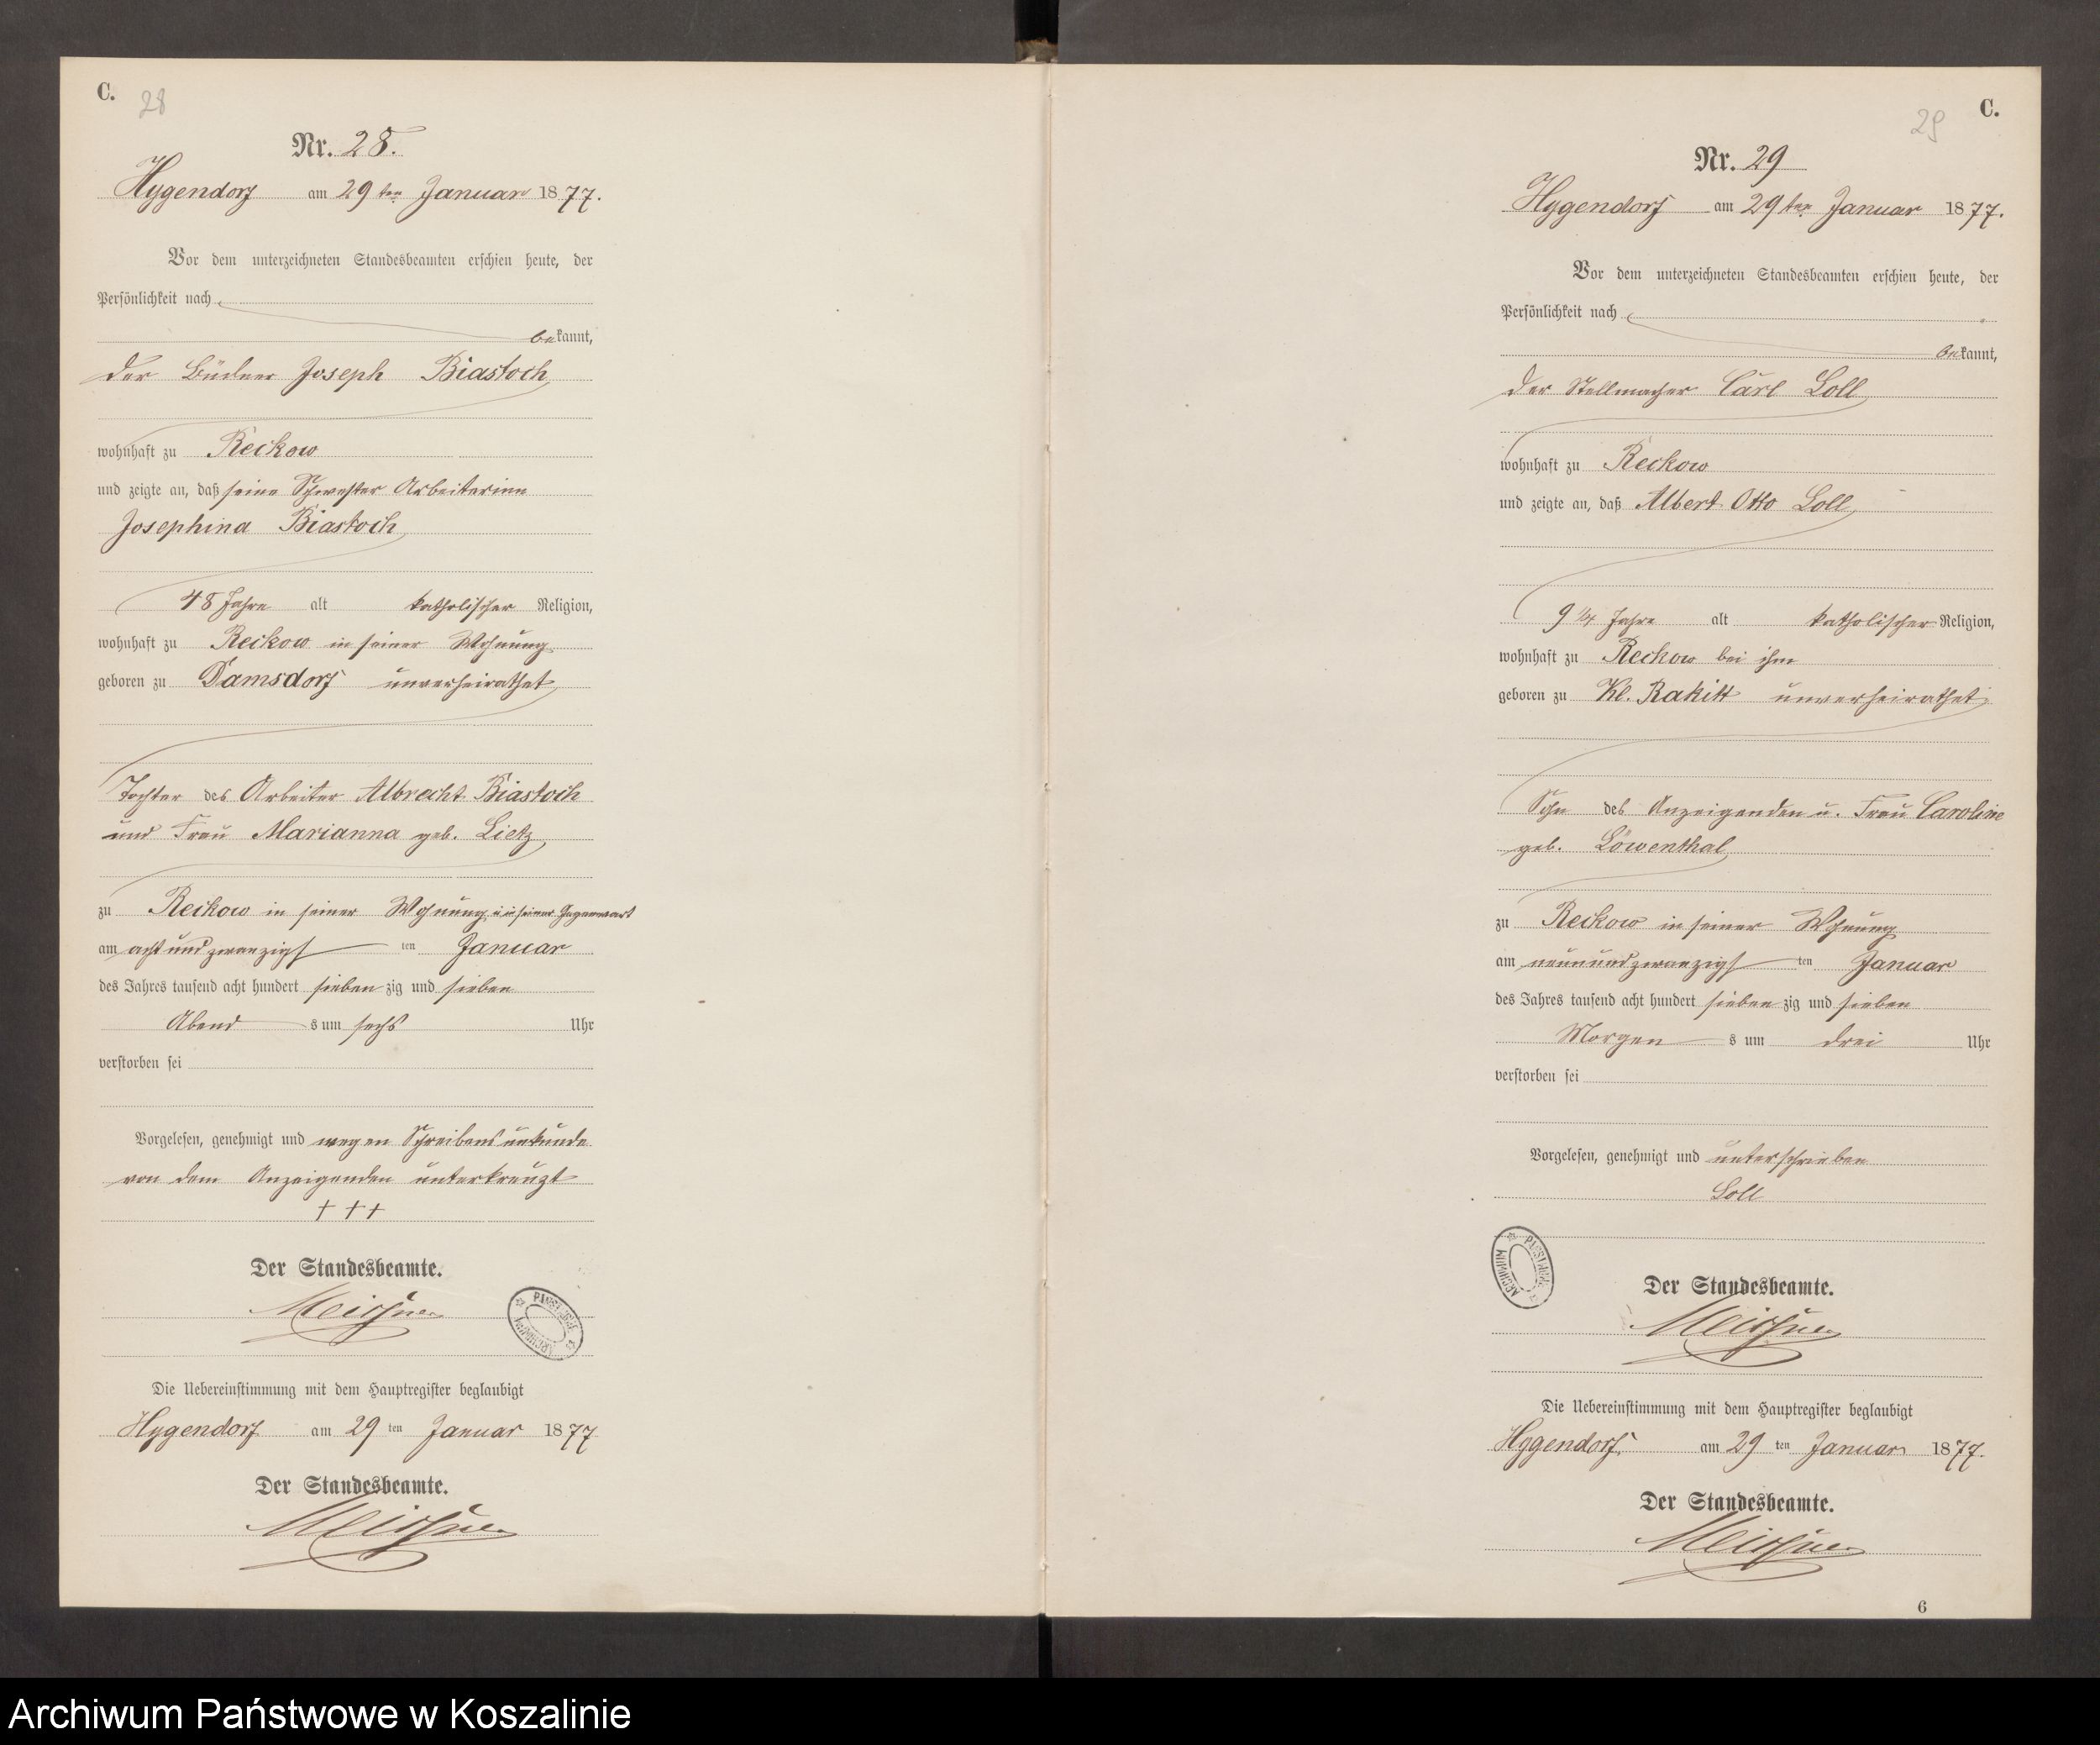 C.
28
Nr. 28.
Hygendorf am 29ten Januar 1877.
Vor dem unterzeichneten Standesbeamten erschien heute, der
Persönlichkeit nach
bekannt,
der Büdner Joseph Biastoch
wohnhaft zu Reckow
und zeigte an, daß seine Schwester Arbeiterinn
Josephina Biastoch
48 Jahre alt katholischer Religion,
wohnhaft zu Reckow in seiner Wohnung
geboren zu Damsdorf unverheirathet
Tochter des Arbeiter Albrecht Biastoch
und Frau Marianna geb. Lietz
zu Reckow in seiner Wohnung u in seiner Gegenwart
am acht und zwanzigsten Januar
des Jahres tausend acht hundert siebenzig und sieben
Abends um sechs Uhr
verstorben sei
Vorgelesen, genehmigt und wegen Schreibensunkunde
von dem Anzeigenden unterkreuzt
+ + +
Der Standesbeamte.
Die Uebereinstimmung mit dem Hauptregister beglaubigt
Hygendorf am 29ten Januar 1877
Der Standesbeamte.
C.
29
Nr. 29
Hygendorf am 29ten Januar 1877.
Vor dem unterzeichneten Standesbeamten erschien heute, der
Persönlichkeit nach
bekannt,
der Stellmacher Carl Loll
wohnhaft zu Reckow
und zeigte an, daß Albert Otto Loll
9 1/4 Jahre alt katholischer Religion,
wohnhaft zu Reckow bei ihm
geboren zu Kl. Rakitt unverheirathet
Sohn des Anzeigenden u. Frau Caroline
geb. Löwenthal
zu Reckow in seiner Wohnung
am neunundzwanzigsten Januar
des Jahres tausend acht hundert siebenzig und sieben
Morgens um drei Uhr
verstorben sei
Vorgelesen, genehmigt und unterschrieben
Loll
Der Standesbeamte.
Die Uebereinstimmung mit dem Hauptregister beglaubigt
Hygendorf. am 29ten Januar 1877.
Der Standesbeamte.
6
Archiwum Państwowe w Koszalinie